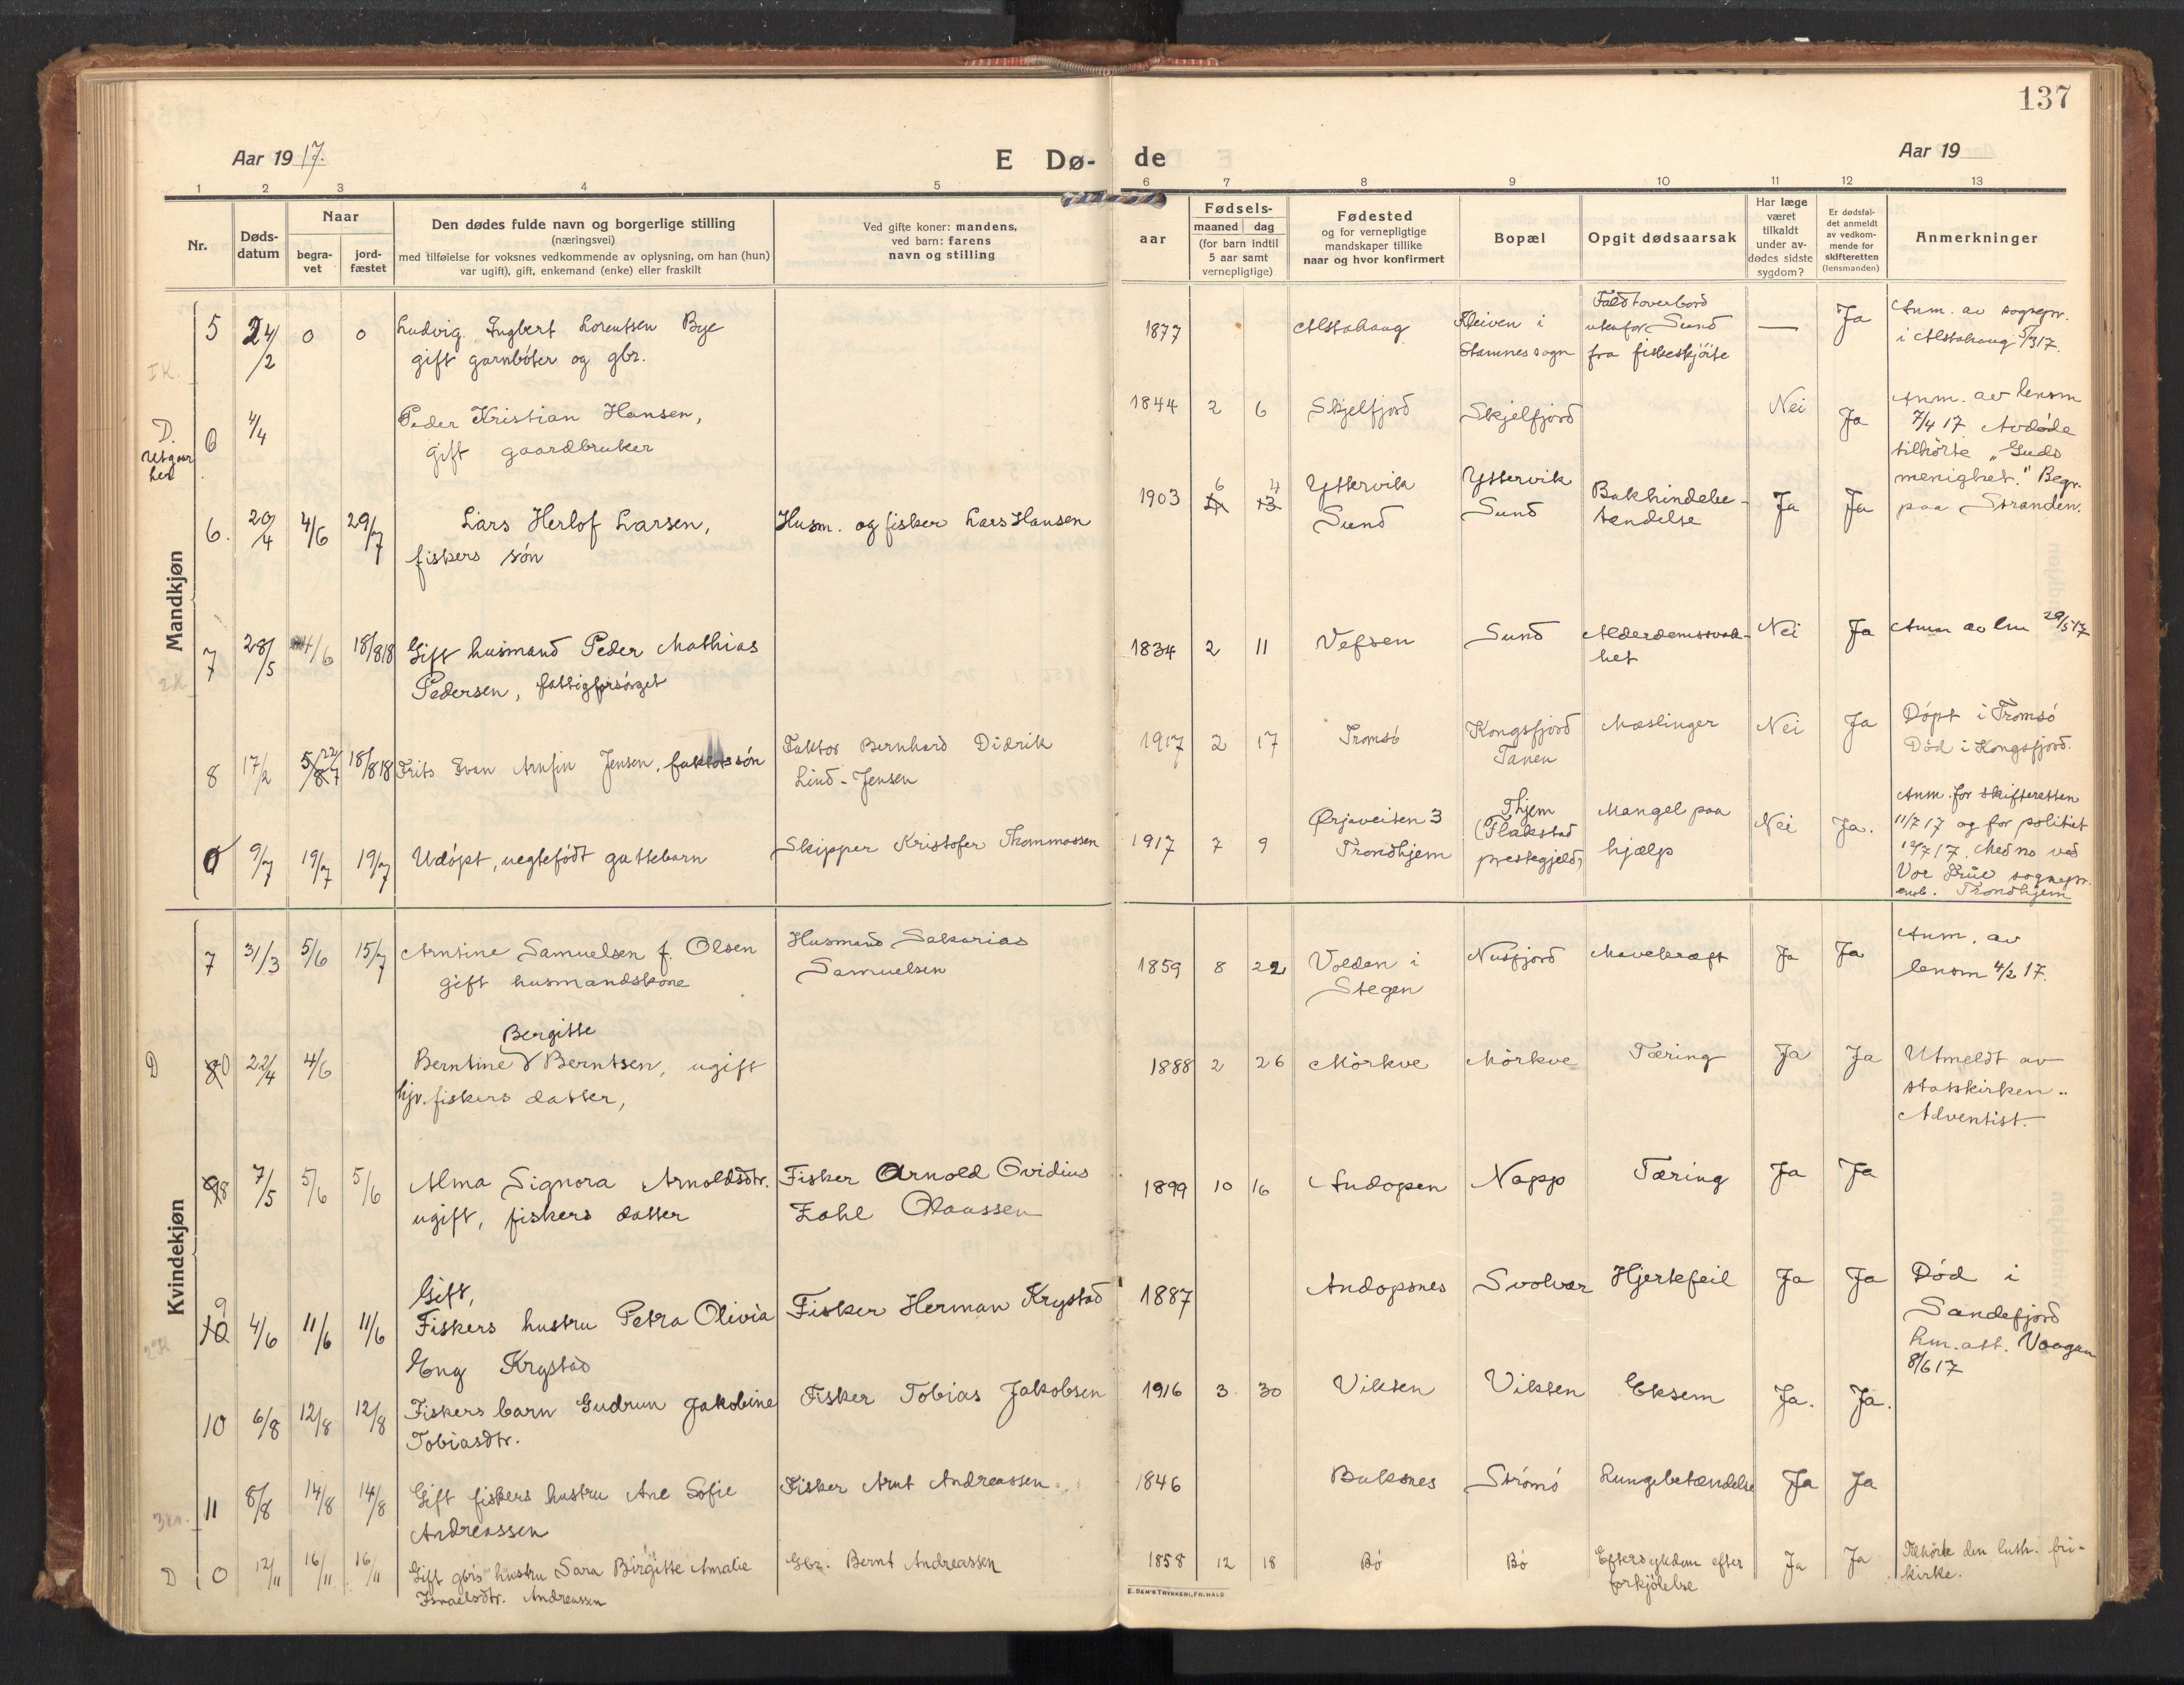 137
Aar 1917.
E Dø-
de
Aar 19
1 2 3 4 5 6 7 8 9 10 11 12 13
Nr.
Døds-
datum
Naar
begra-
vet
jord-
fæstet
Den dødes fulde navn og borgerlige stilling
(næringsvei)
med tilføielse for voksnes vedkommende av oplysning, om han (hun)
var ugift), gift, enkemand (enke) eller fraskilt
Ved gifte koner: mandens,
ved barn: farens
navn og stilling
aar
Fødsels-
maaned dag
(for barn indtil
5 aar samt
vernepligtige)
Fødested
og for vernepligtige
mandskaper tillike
naar og hvor konfirmert
Bopæl
Opgit dødsaarsak
Har læge
været
tilkaldt
under av-
dødes sidste
sygdom?
Er dødsfal-
det anmeldt
av vedkom-
mende for
skifteretten
(lensmanden)
Anmerkninger
Mandkjøn
5 24/2 0 0 Ludvig Ingbert Lorentsen Bye
gift garnbøter og gbr.
1877 Alstahaug Kleiven i
Stamnes sogn
Faldt overbord
utenfor Sund
fra fiskeskjøite
— Ja
Anm. av sognepr.
i Alstahaug 5/3 17.
D.
Utgaar
her
6 4/4 Peder Kristian Hansen,
gift gaardbruker
1844 2 6 Skjelfjord Skjelfjord Nei Ja
Anm. av lensm
7/4 17 Avdøde
tilhørte „Guds
menighet." Begr.
paa Stranden.
6. 20/4 4/6 29/7 Lars Herlof Larsen,
fiskers søn
Husm. og fisker Lars Hansen
1903 6 4
Yttervik
Sund
Yttervik
Sund
Bukhindebe-
tændelse
Ja Ja
7 28/5 4/6 18/8 18 Gift husmand Peder Mathias
Pedersen, fattigforsørget
1834 2 11 Vefsen Sund Alderdomssvak-
het
Nei Ja Anm av lm 29/5 17
8 17/2 22/7 18/8 18 Frits Evan Arnfin Jensen, faktorssøn
Faktor Bernhard Didrik
Lind-Jensen
1917 2 17 Tromsø Kongsfjord
Tanen
Mæslinger Nei Ja
Døpt i Tromsø
Død i Kongsfjord.
0 9/7 19/7 19/7 Udøpt, uegtefødt guttebarn
Skipper Kristofer Thommassen
1917 7 9 Ørjaveiten 3
Trondhjem
Thjem
(Flakstad
prestegjeld)
Mangel paa
hjælp
Nei Ja.
Anm. for skifteretten
11/7 17 og for politiet
12/7 17. Med no ved
Vor Frue sognepr.
emb. Trondhjem
Kvindekjøn
7 31/3 5/6 15/7 Arntine Samuelsen f. Olsen
gift husmandskone
Husmand Sakarias
Samuelsen
1859 8 22 Volden i
Stegen
Nusfjord Mavekræft Ja Ja
Anm. av
lensm 4/2 17.
D 0 22/4 4/6
Bergitte
Berntine Berntsen, ugift
hjv. fiskers datter,
1888 2 26 Mörkve Mörkve Tæring Ja Ja
Utmeldt av
statskirken..
Adventist.
8 7/5 5/6 5/6 Alma Signora Arnoldsdtr.
ugift, fiskers datter
Fisker Arnold Ovidius
Zahl Olaussen
1899 10 16 Andopen Napp Tæring Ja Ja
9
10 4/6 11/6 11/6
Gift,
Fiskers hustru Petra Olivia
Eng Krystad
Fisker Herman Krystad
1887 Andopsnes Svolvær Hjertefeil Ja Ja
Død i
Sandefjord
lm. att. Vaagan
8/6 17
10 6/8 12/8 12/8 Fiskers barn Gudrun Jakobine
Tobiasdtr.
Fisker Tobias Jakobsen
1916 3 30 Vikten Vikten Eksem Ja. Ja.
11 8/8 14/8 14/8 Gift fiskers hustru Ane Sofie
Andreassen
Fisker Arnt Andreassen
1846 Buksnes Strömö Lungebetændelse Ja Ja
D 0 12/11 16/11 16/11 Gift gbrs hustru Sara Birgitte Amalie
Israelsdtr. Andreassen
Gbr. Bernt Andreassen
1858 12 18 Bö Bö Eftersykdom efter
forkjølelse
Ja Ja
Tilhörte den luth. fri-
kirke.
E. SEM'S TRYKKERI, FR.HALD